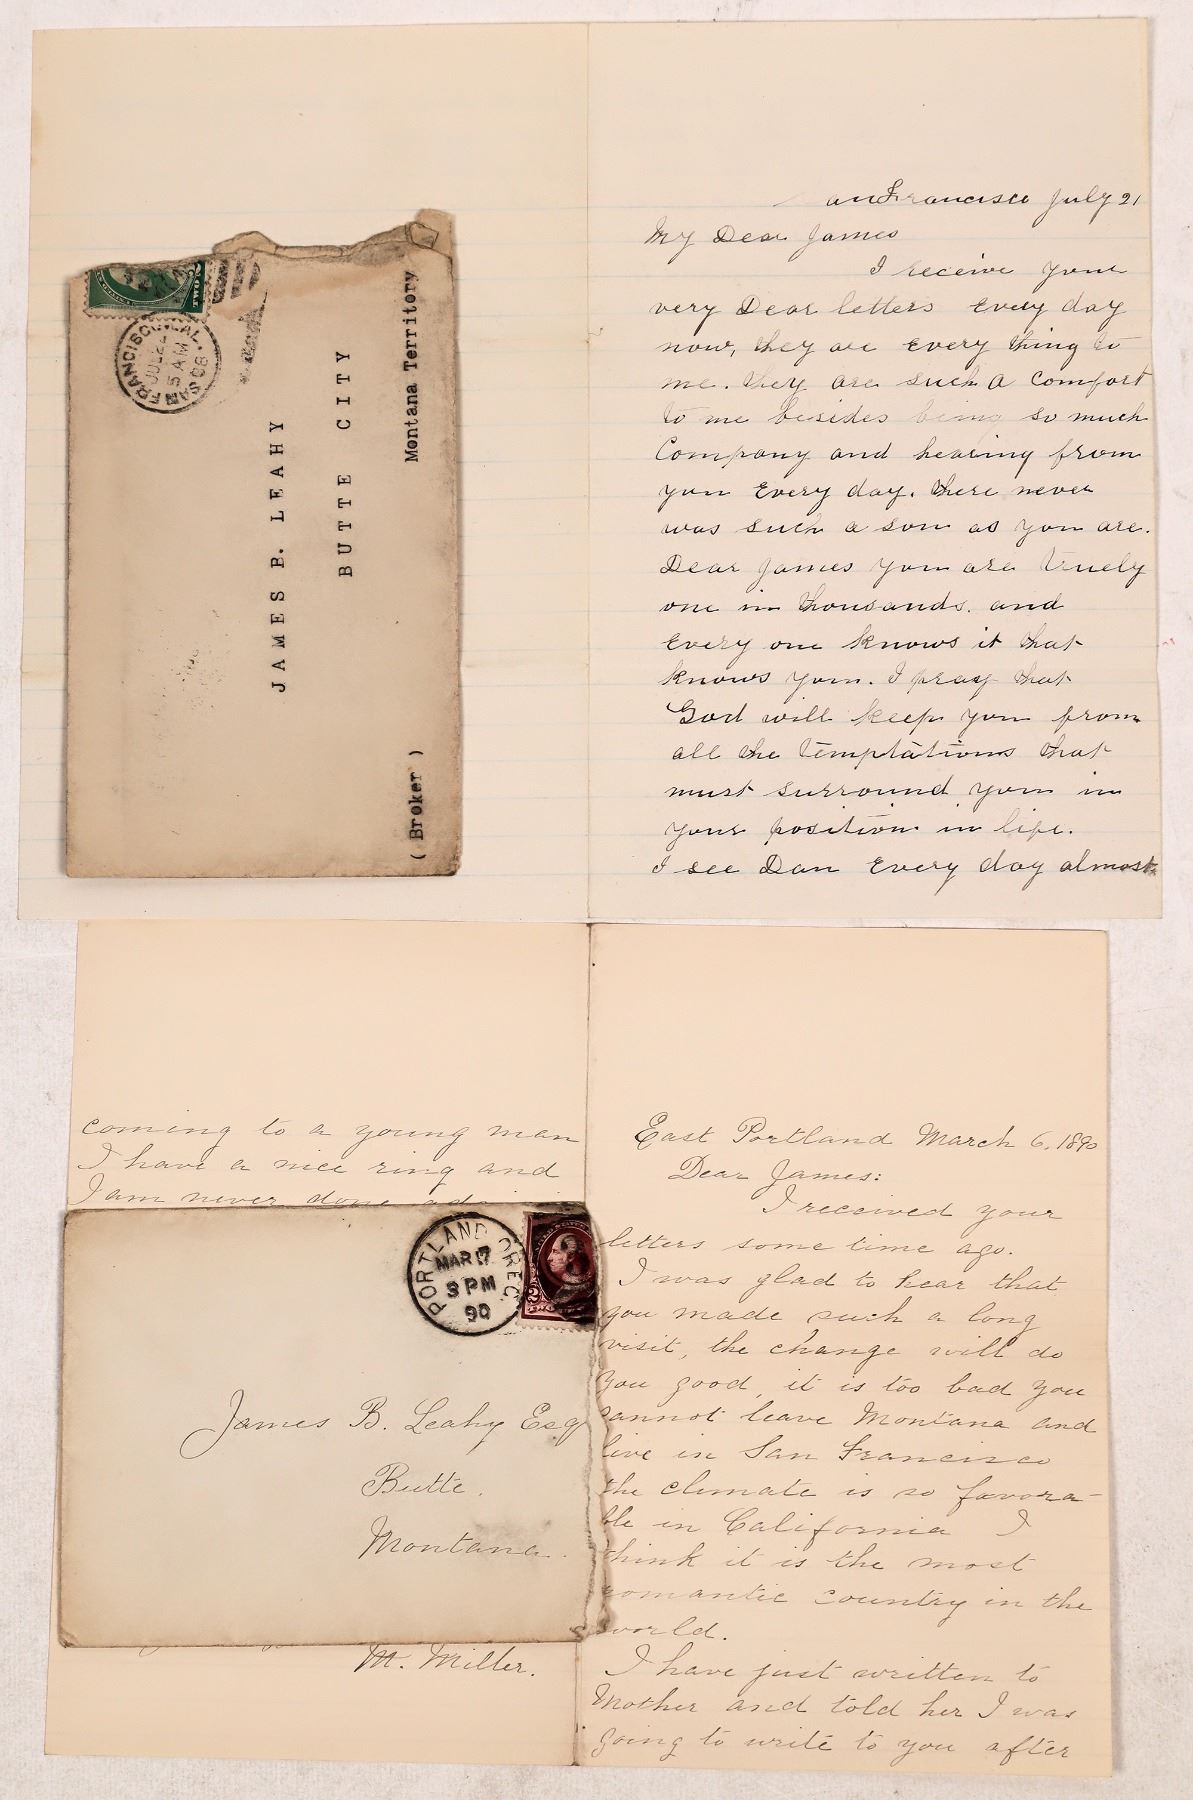 an Francisco July 21
My Dear James
I receive your
very Dear letters every day
now, they are every thing to
me. they are such a comfort
to me besides being so much
Company and hearing from
you every day. there never
was such a son as you are.
Dear James you are truely
one in thousands. and
every one knows it that
knows you. I pray that
God will keep you from
all the temptations that
must surround you in
your position in life.
I see Dan every day almost
TWO
SAN FRANCISCO, CAL.
JUL 2
5 AM
88
JAMES B. LEAHY
BUTTE CITY
Montana Territory
(Broker)
coming to a young man
I have a nice ring and
I am never done
PORTLAND OREG.
MAR 17
3 PM
90
James B. Leahy Esq
Butte.
Montana.
M. Miller.
East Portland March 6, 1890
Dear James:
I received your
letters some time ago.
I was glad to hear that
you made such a long
visit, the change will do
you good, it is too bad you
cannot leave Montana and
live in San Francisco
the climate is so favora-
ble in California I
think it is the most
romantic country in the
world.
I have just written to
Mother and told her I was
going to write to you after